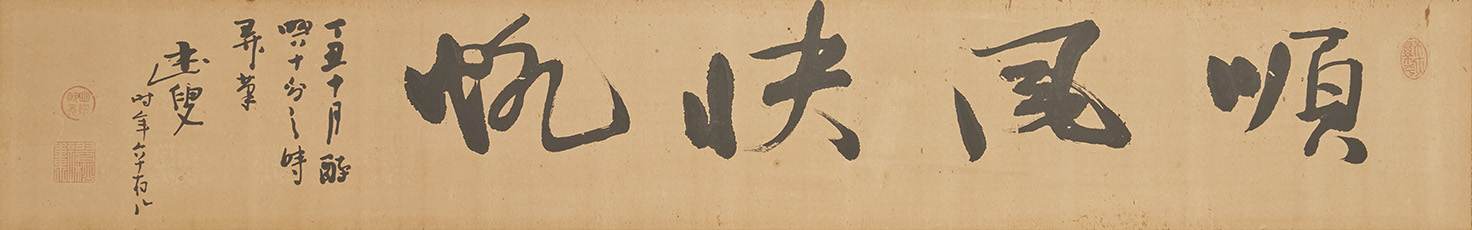 順風快帆
丁丑十月醉
八十分之時
弄筆
叟
時年六十有八